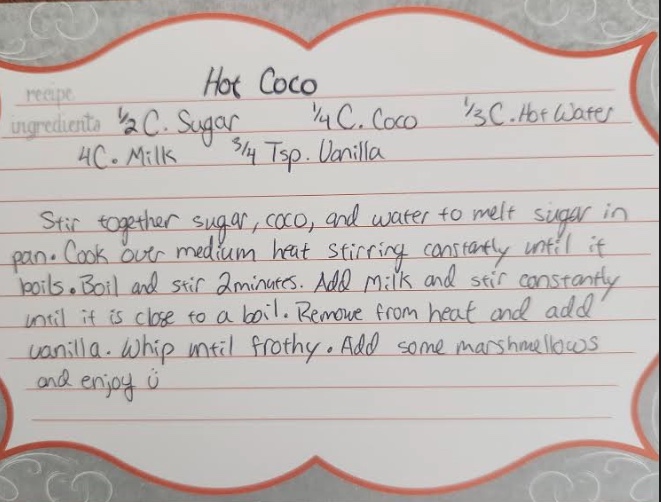 Hot Coco
recipe
ingredients 1/2 C. Sugar 1/4 C. Coco 1/3 C. Hot Water
4C. Milk 3/4 Tsp. Vanilla
Stir together sugar, coco, and water to melt sugar in
pan. Cook over medium heat stirring constantly until it
boils. Boil and stir 2minutes. Add Milk and stir constantly
until it is close to a boil. Remove from heat and add
vanilla. Whip until frothy. Add some marshmellows
and enjoy ü